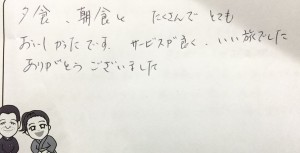 夕食、朝食と たくさんで とても
おいしかったです。サービスが良く、いい旅でした
ありがとう ございました